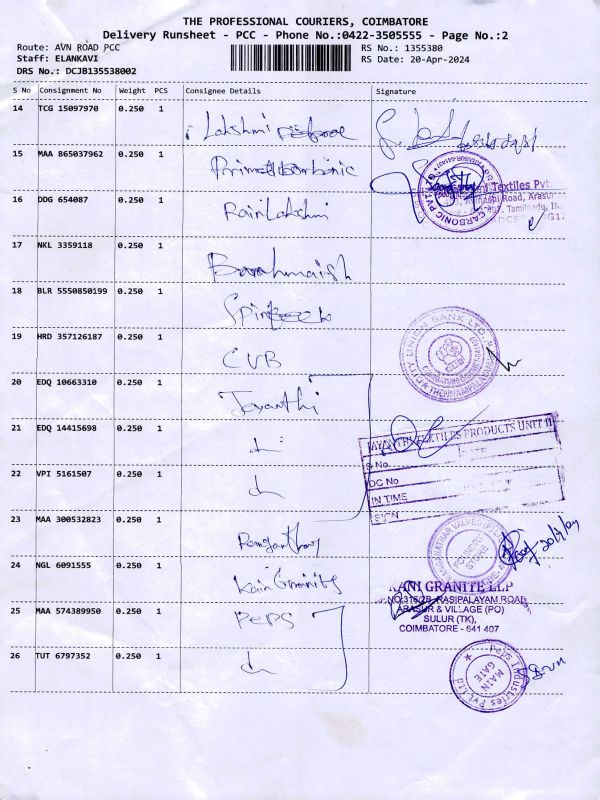 THE PROFESSIONAL COURIERS, COIMBATORE
Delivery Runsheet - PCC - Phone No.:0422-3505555 - Page No.:2
Route: AVN ROAD PCC
RS No.: 1355380
Staff: ELANKAVI
RS Date: 20-Apr-2024
DRS No.: DCJB135538002
S No Consignment No Weight PCS Consignee Details Signature
14 TCG 15097970 0.250 1 Lakshmi
15 MAA 865037962 0.250 1
Textiles Pvt.
Road, Arasur
16 DDG 654087 0.250 1 Rani Lakshmi
17 NKL 3359118 0.250 1
18 BLR 5550850199 0.250 1
19 HRD 357126187 0.250 1 CVB
CITY UNION BANK LTD.
20 EDQ 10663310 0.250 1 Jayanthi
21 EDQ 14415698 0.250 1
JAYANTHI TEXTILES PRODUCTS UNIT II
S No
22 VPI 5161507 0.250 1
DC No
IN TIME
SIGN
23 MAA 300532823 0.250 1
STORE
24 NGL 6091555 0.250 1 Rani Granite
RANI GRANITE LLP
RASIPALAYAM ROAD
25 MAA 574389950 0.250 1 PEPS
ARASUR & VILLAGE (PO)
SULUR (TK),
COIMBATORE - 641 407
26 TUT 6797352 0.250 1
Peps Industries Pvt.Ltd
MAIN
GATE